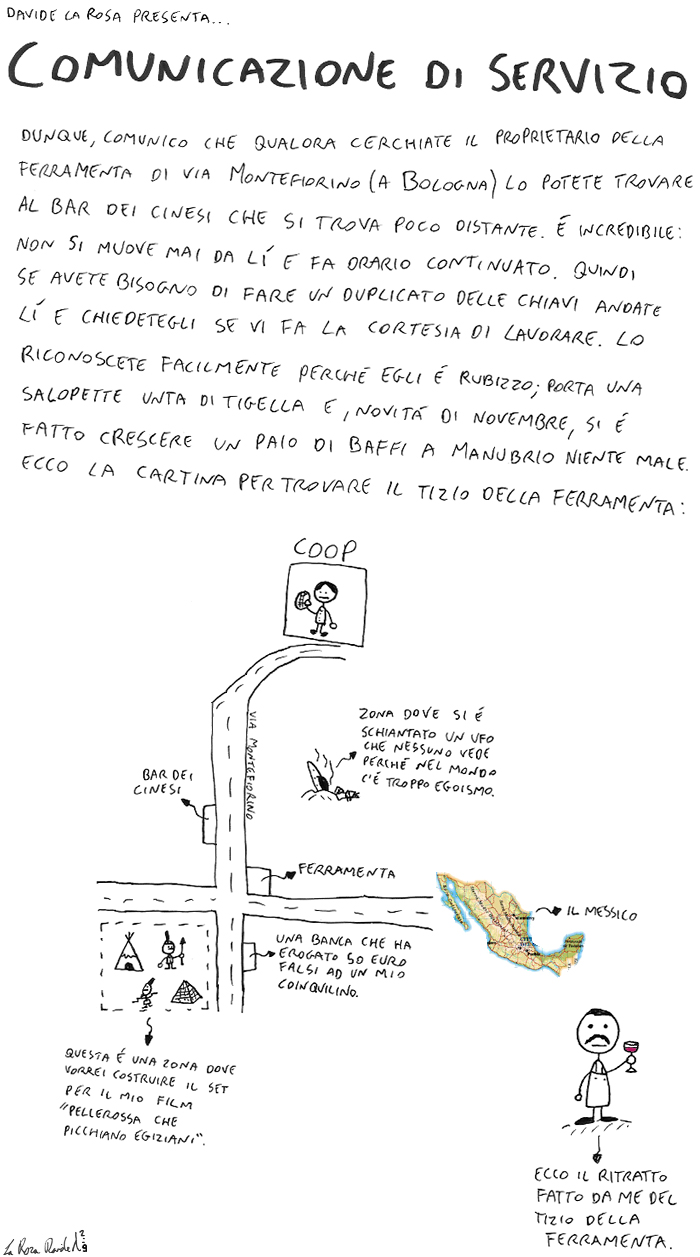 DAVIDE LA ROSA PRESENTA...
COMUNICAZIONE DI SERVIZIO
DUNQUE, COMUNICO CHE QUALORA CERCHIATE IL PROPRIETARIO DELLA
FERRAMENTA DI VIA MONTEFIORINO (A BOLOGNA) LO POTETE TROVARE
AL BAR DEI CINESI CHE SI TROVA POCO DISTANTE. É INCREDIBILE:
NON SI MUOVE MAI DA LÍ E FA ORARIO CONTINUATO. QUINDI
SE AVETE BISOGNO DI FARE UN DUPLICATO DELLE CHIAVI ANDATE
LÍ E CHIEDETEGLI SE VI FA LA CORTESIA DI LAVORARE. LO
RICONOSCETE FACILMENTE PERCHÉ EGLI É RUBIZZO; PORTA UNA
SALOPETTE UNTA DI TIGELLA E, NOVITÁ DI NOVEMBRE, SI É
FATTO CRESCERE UN PAIO DI BAFFI A MANUBRIO NIENTE MALE.
ECCO LA CARTINA PER TROVARE IL TIZIO DELLA FERRAMENTA:
COOP
VIA MONTEFIORINO
ZONA DOVE SI É
SCHIANTATO UN UFO
CHE NESSUNO VEDE
PERCHÉ NEL MONDO
C'É TROPPO EGOISMO.
BAR DEI
CINESI
FERRAMENTA
IL MESSICO
UNA BANCA CHE HA
EROGATO 50 EURO
FALSI AD UN MIO
COINQUILINO.
QUESTA É UNA ZONA DOVE
VORREI COSTRUIRE IL SET
PER IL MIO FILM
"PELLEROSSA CHE
PICCHIANO EGIZIANI".
ECCO IL RITRATTO
FATTO DA ME DEL
TIZIO DELLA
FERRAMENTA.
La Rosa Davide